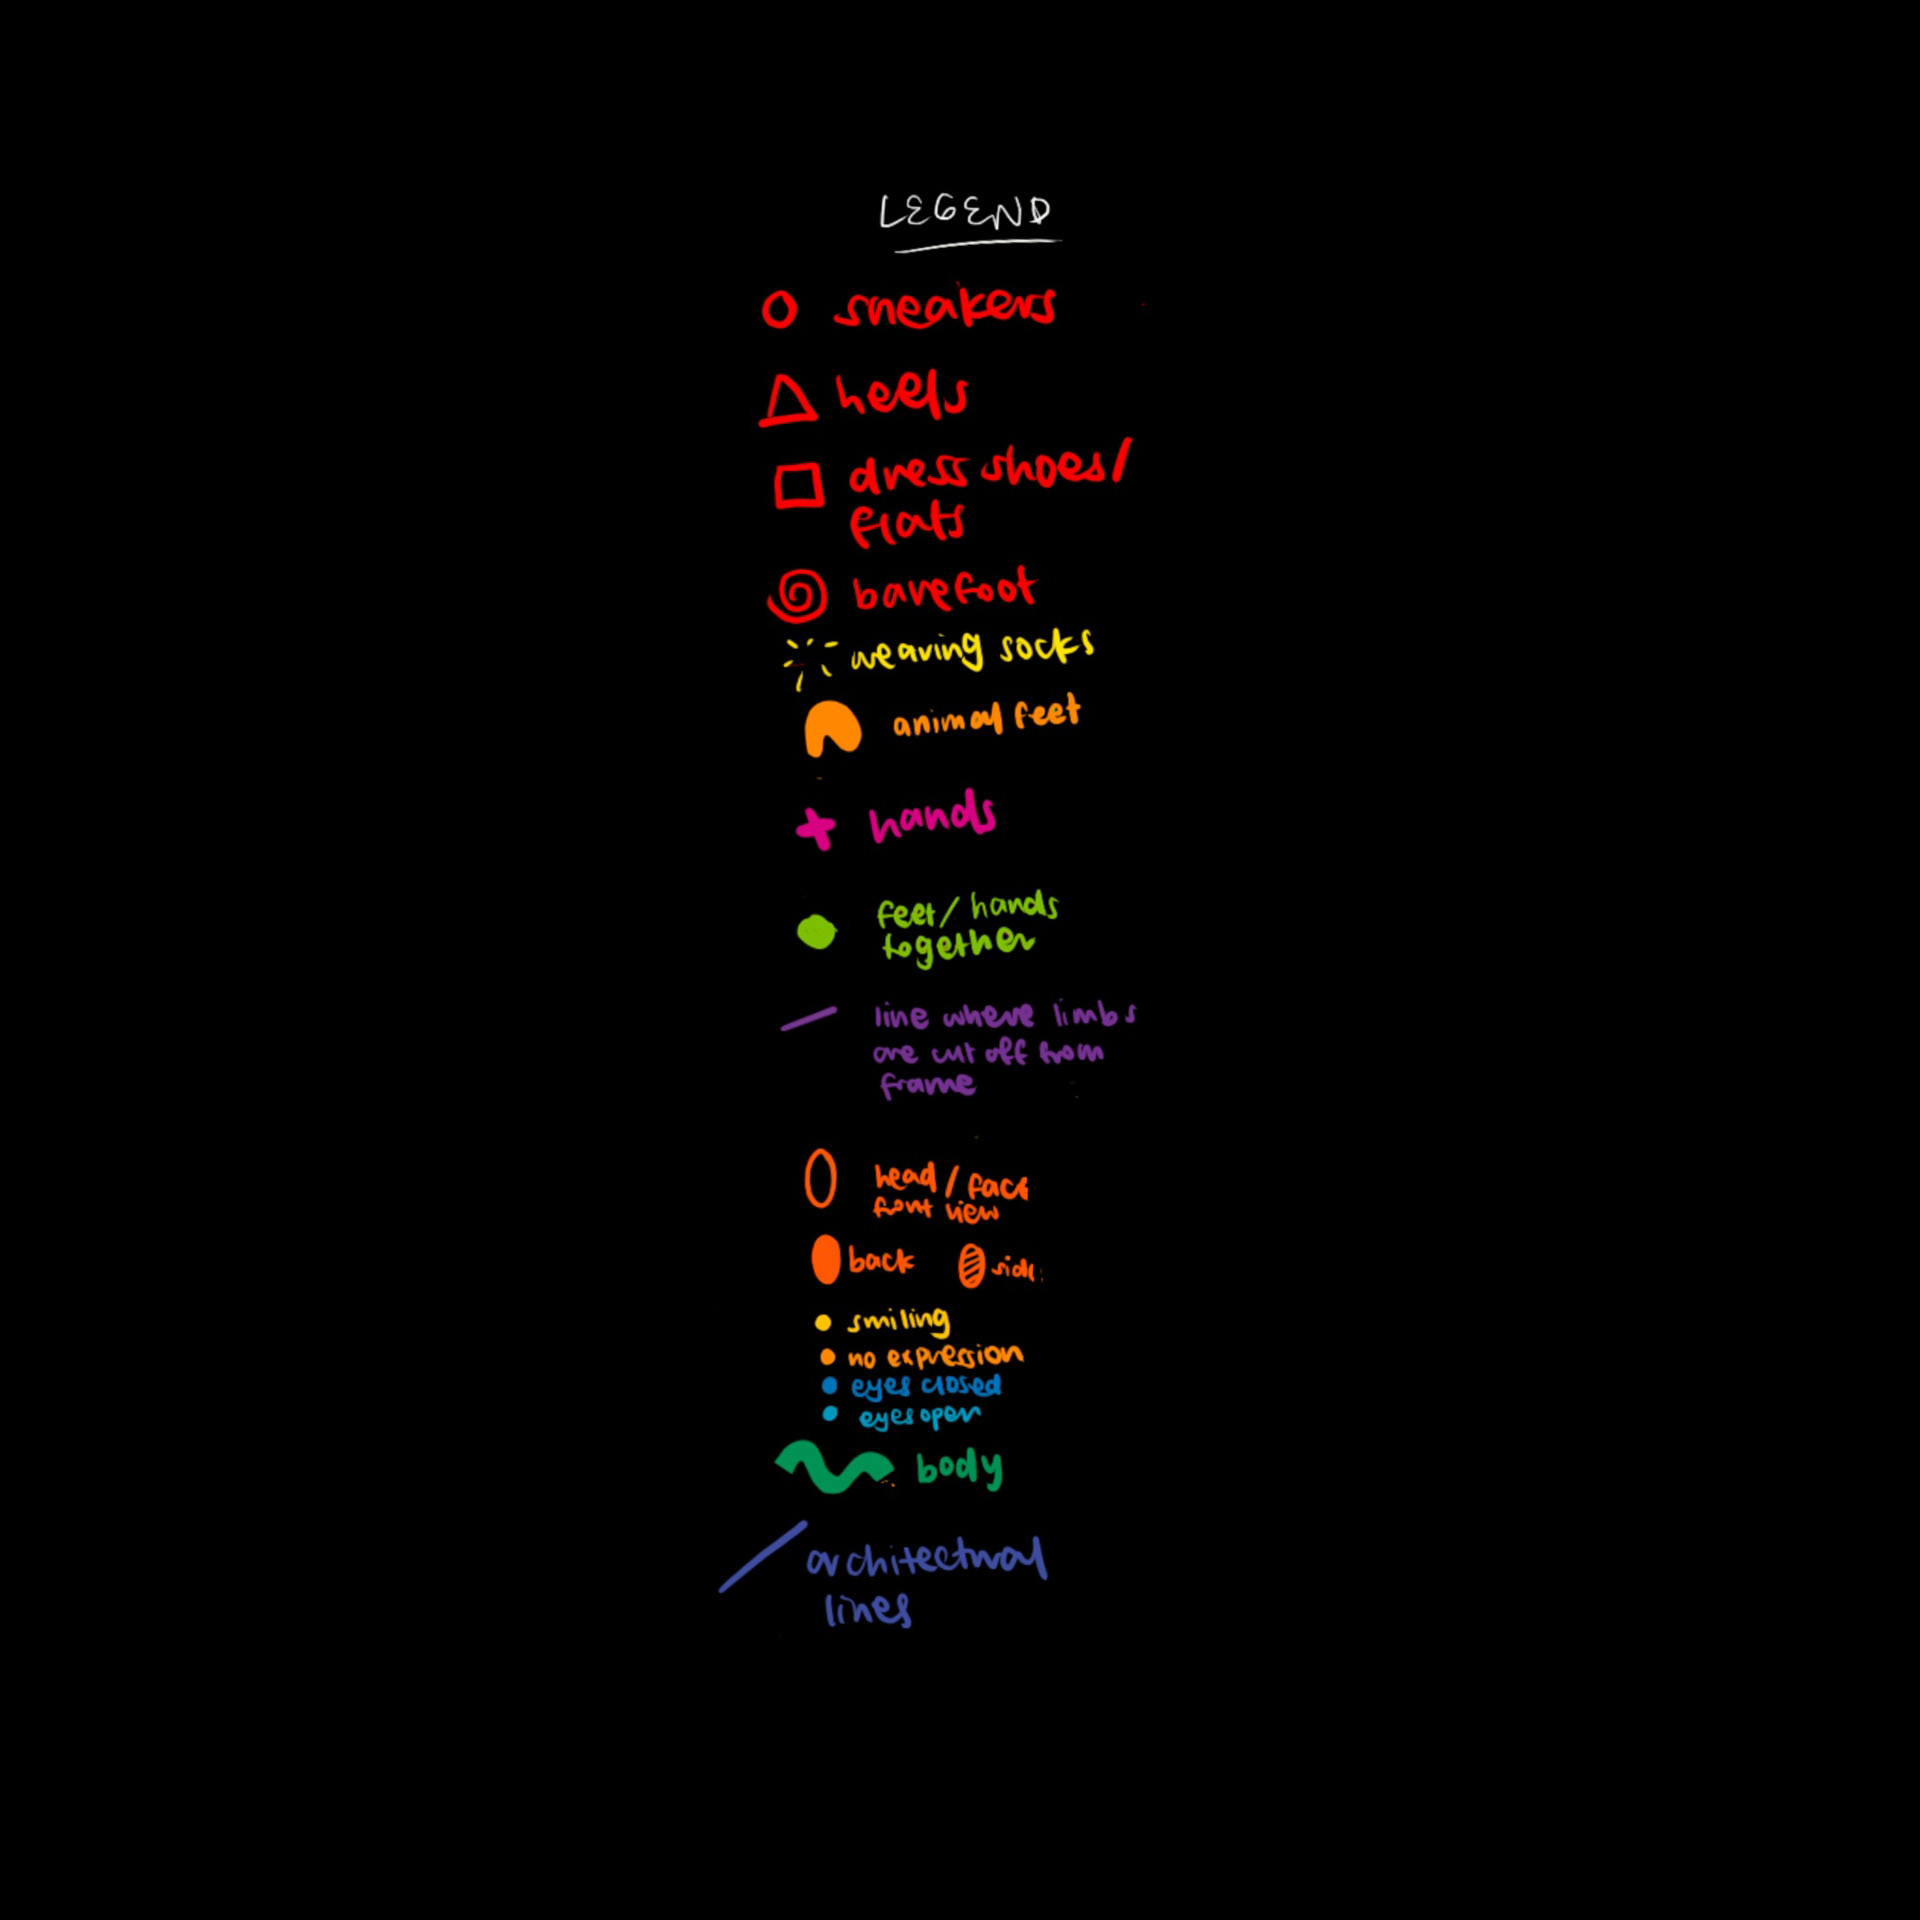 LEGEND
sneakers
heels
dress shoes/
flats
barefoot
wearing socks
animal feet
hands
feet/hands
together
line where limbs
are cut off from
frame
head/face
front view
back side
smiling
no expression
eyes closed
eyes open
body
architectural
lines